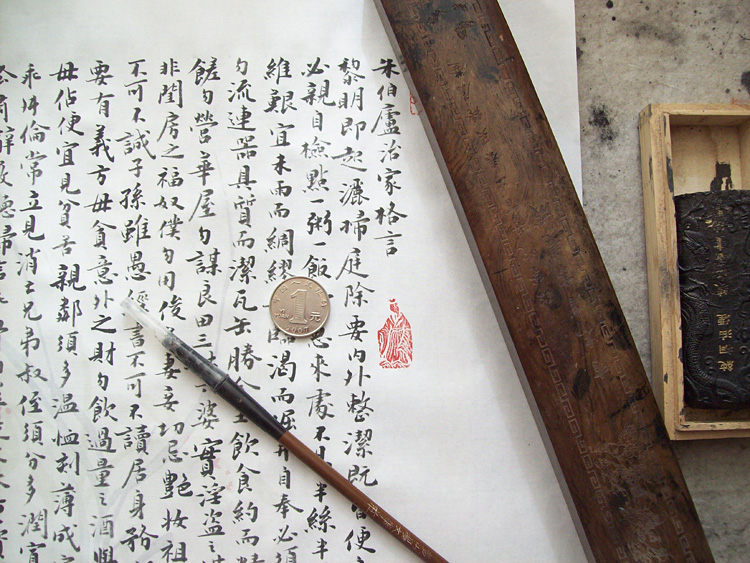 朱伯廬治家格言
黎明即起灑掃庭除要內外整潔既昏便
必親自檢點一粥一飯思來處不易半絲半
維艱宜未雨而綢繆臨渴而掘井自奉必須
勿流連器具質而潔瓦缶勝金玉飲食約而精
饈勿營華屋勿謀良田三婆實淫盜之
非閨房之福奴僕勿用俊妻妾切忌艷妝祖
不可不誠子孫雖愚經書不可不讀居身務
要有義方毋貪意外之財勿飲過量之酒與
毋佔便宜見貧苦親鄰須多溫恤刻薄成
乖舛倫常立見消亡兄弟叔侄須分多潤寡
肅辭
1元
2007